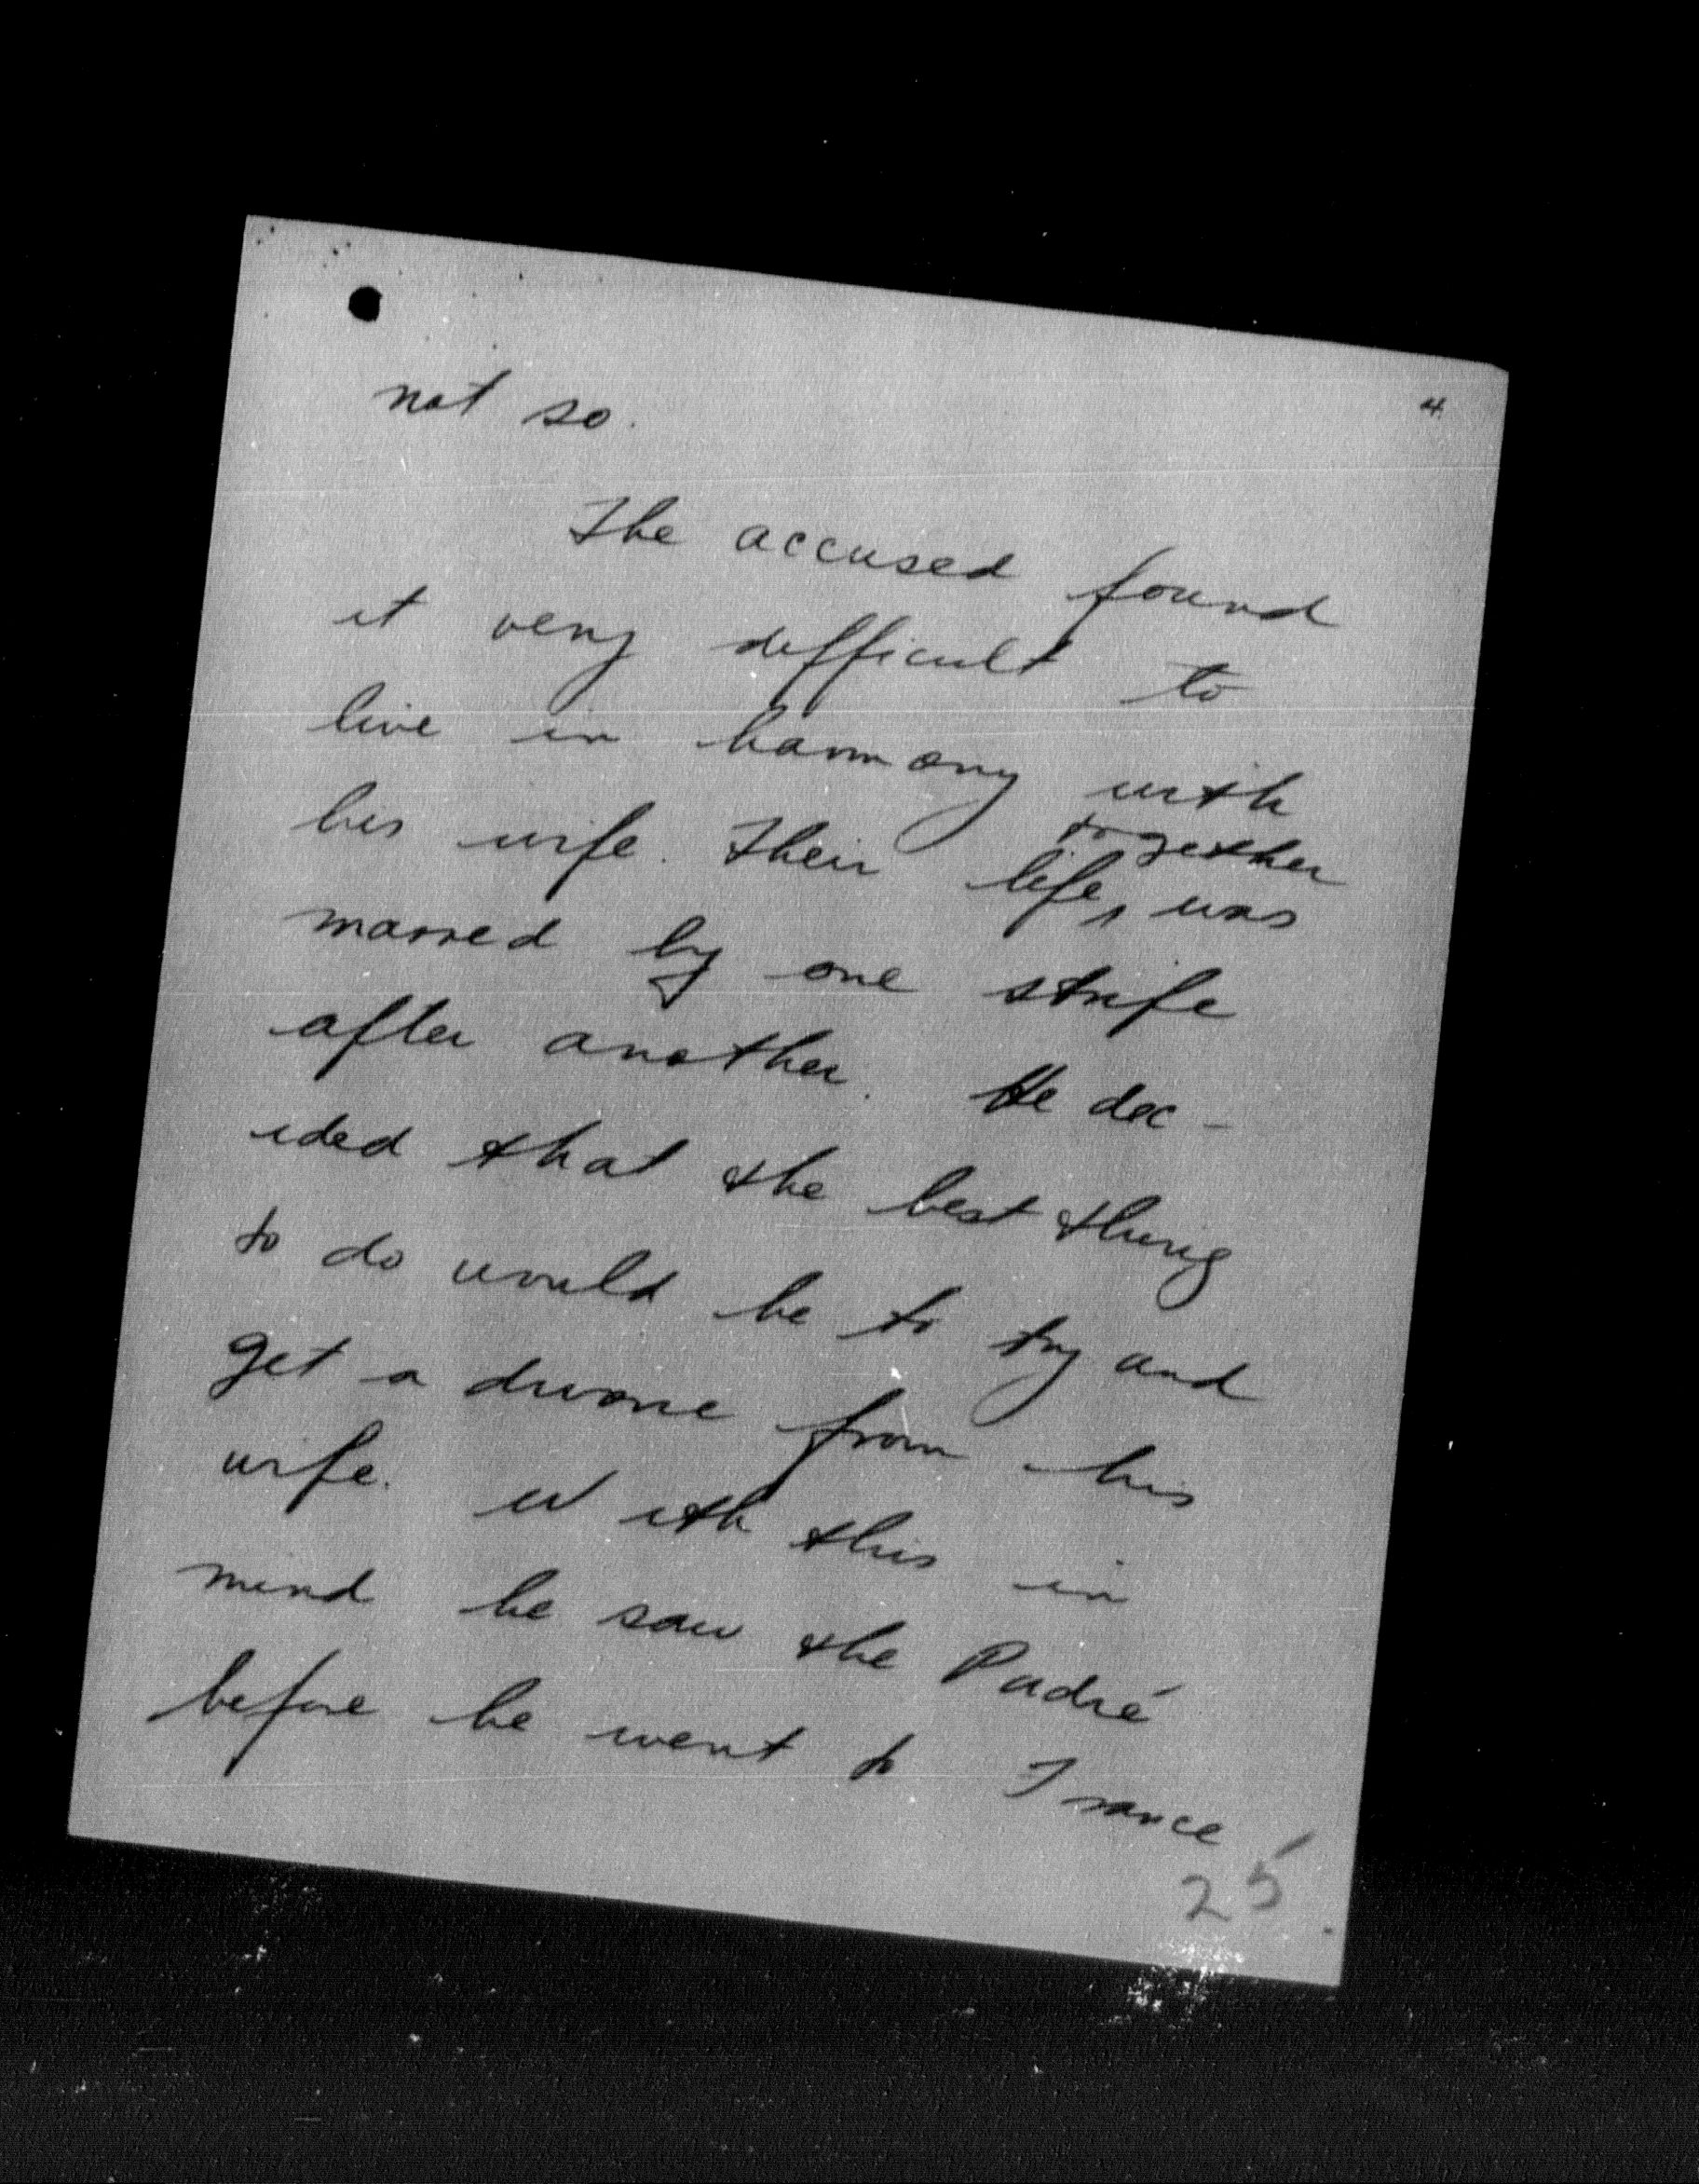 4.
not so.
The accused found
it very difficult to
live in harmony with
together
his wife. Their life, was
marred by one strife
after another. He dec-
ided that the best thing
to do would be to try and
get a divorce from his
wife. With this in
mind he saw the Padré
before he went to France
25.